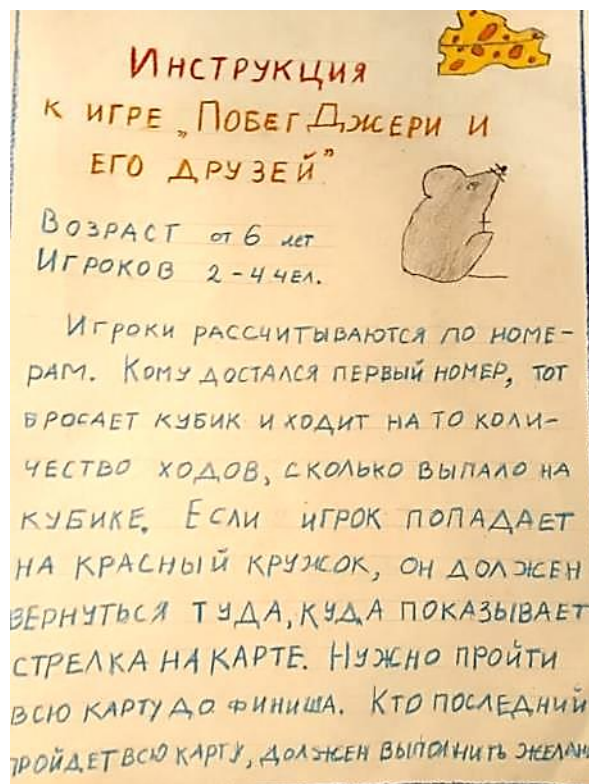 Инструкция
к игре „Побег Джери и
его друзей”
Возраст от 6 лет
Игроков 2-4 чел.
Игроки рассчитываются по номе-
рам. Кому достался первый номер, тот
бросает кубик и ходит на то коли-
чество ходов, сколько выпало на
кубике. Если игрок попадает
на красный кружок, он должен
вернуться туда, куда показывает
стрелка на карте. Нужно пройти
всю карту до финиша. Кто последний
пройдет всю карту, должен выполнить